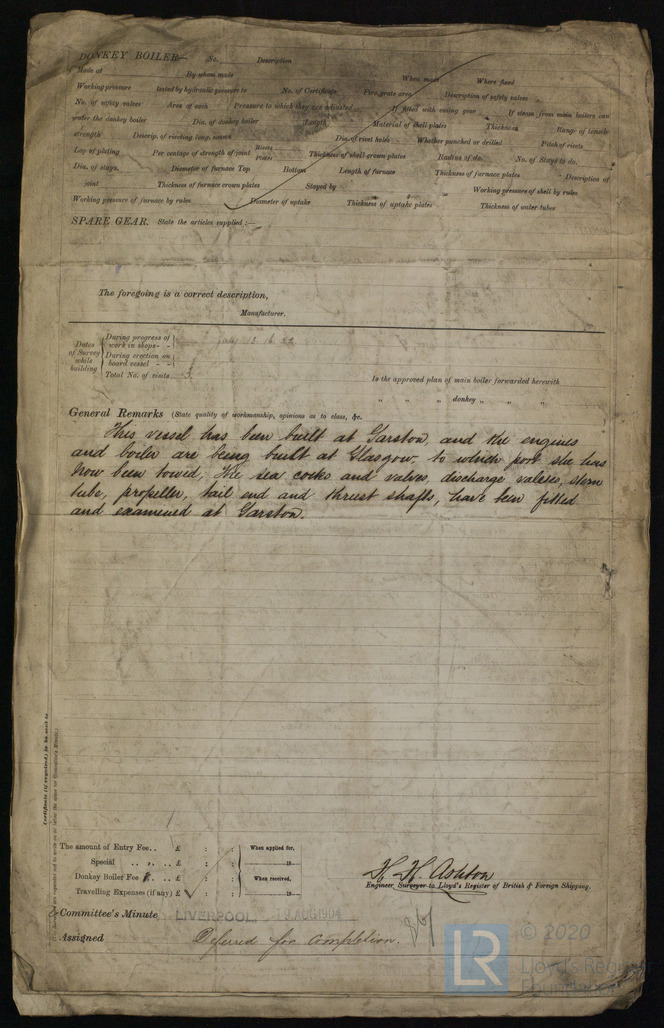 DONKEY BOILER— No. Description
Made at By whom made When made Where fixed
Working pressure tested by hydraulic pressure to No. of Certificate Fire grate area Description of safety valves
No. of safety valves Area of each Pressure to which they are adjusted If fitted with easing gear If steam from main boilers can
enter the donkey boiler Dia. of donkey boiler Length Material of shell plates Thickness Range of tensile
strength Descrip. of riveting long. seams Dia. of rivet holes Whether punched or drilled Pitch of rivets
Lap of plating Per centage of strength of joint Rivets Plates Thickness of shell crown plates Radius of do. No. of Stays to do.
Dia. of stays. Diameter of furnace Top Bottom Length of furnace Thickness of furnace plates Description of
joint Thickness of furnace crown plates Stayed by Working pressure of shell by rules
Working pressure of furnace by rules Diameter of uptake Thickness of uptake plates Thickness of water tubes
SPARE GEAR. State the articles supplied:—
The foregoing is a correct description,
Manufacturer.
Dates of Survey while building
During progress of work in shops - - July 13 16 22
During erection on board vessel - -
Total No. of visits 3
Is the approved plan of main boiler forwarded herewith
" " " donkey " " "
General Remarks (State quality of workmanship, opinions as to class, &c.
This vessel has been built at Garston, and the engines
and boiler are being built at Glasgow, to which port she has
now been towed, The sea cocks and valves, discharge valves, stern
tube, propeller, tail end and thrust shafts, have been fitted
and examined at Garston.
Certificate (if required) to be sent to
The amount of Entry Fee.. £ : : When applied for,
Special .. .. £ : : 19
Donkey Boiler Fee .. £ : : When received,
Travelling Expenses (if any) £ : : 19
H. H. Ashton
Engineer Surveyor to Lloyd's Register of British & Foreign Shipping.
Committee's Minute LIVERPOOL. 19 AUG 1904
Assigned Deferred for completion.
LR © 2020
Lloyd's Register
Foundation